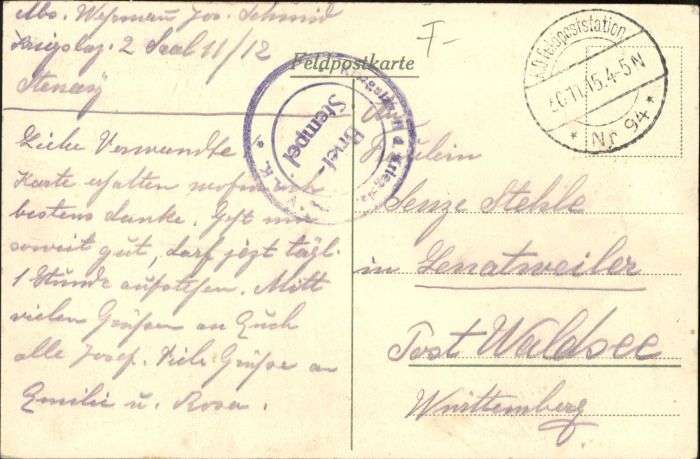 Abs. Wehrmann Jos. Schmid
Kriegslaz. 2 Saal 11/12
Stenay
Feldpostkarte
F-
K.D. Feldpoststation
30.11.15. 4-5 N
* Nr. 94 *
Brief-
Stempel
Liebe Verwandte!
Karte erhalten wofür ich
bestens danke. Geht mir
soweit gut, darf jezt tägl.
1 Stunde aufstehen. Mitt
vielen Grüßen an Euch
alle Josef. Viele Grüße an
Emilie u. Rosa.
Fräulein
Senze Stehle
in
Post Waldsee
Württemberg